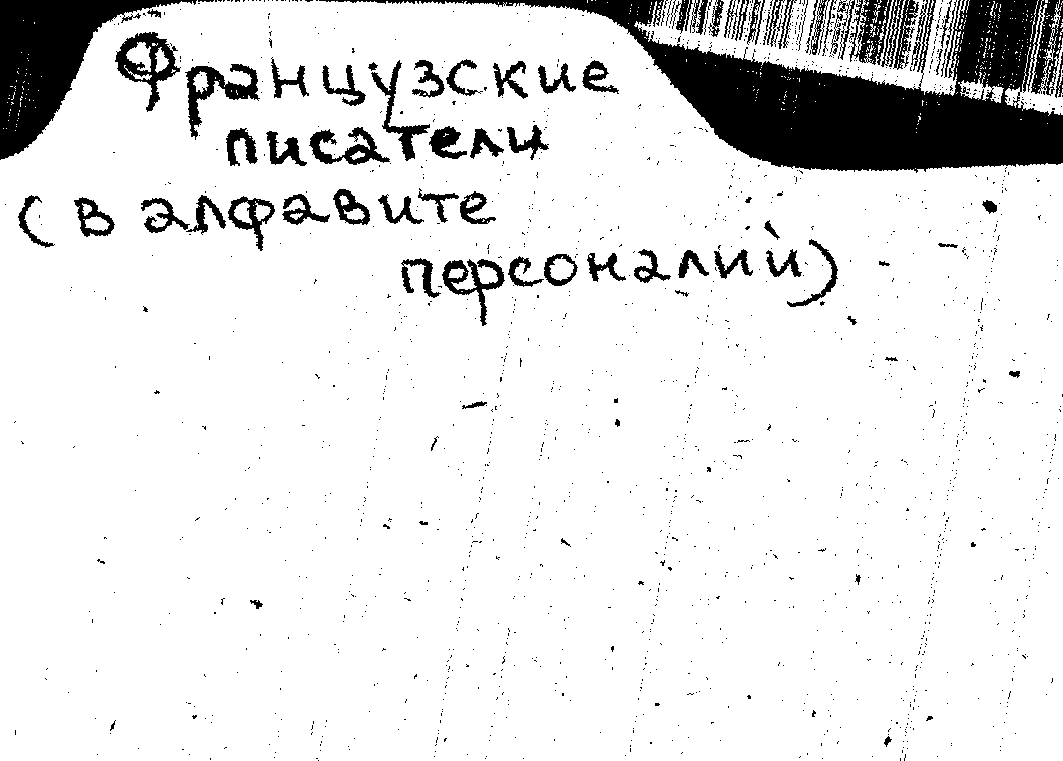 Французские
писатели
(в алфавите
персоналий)